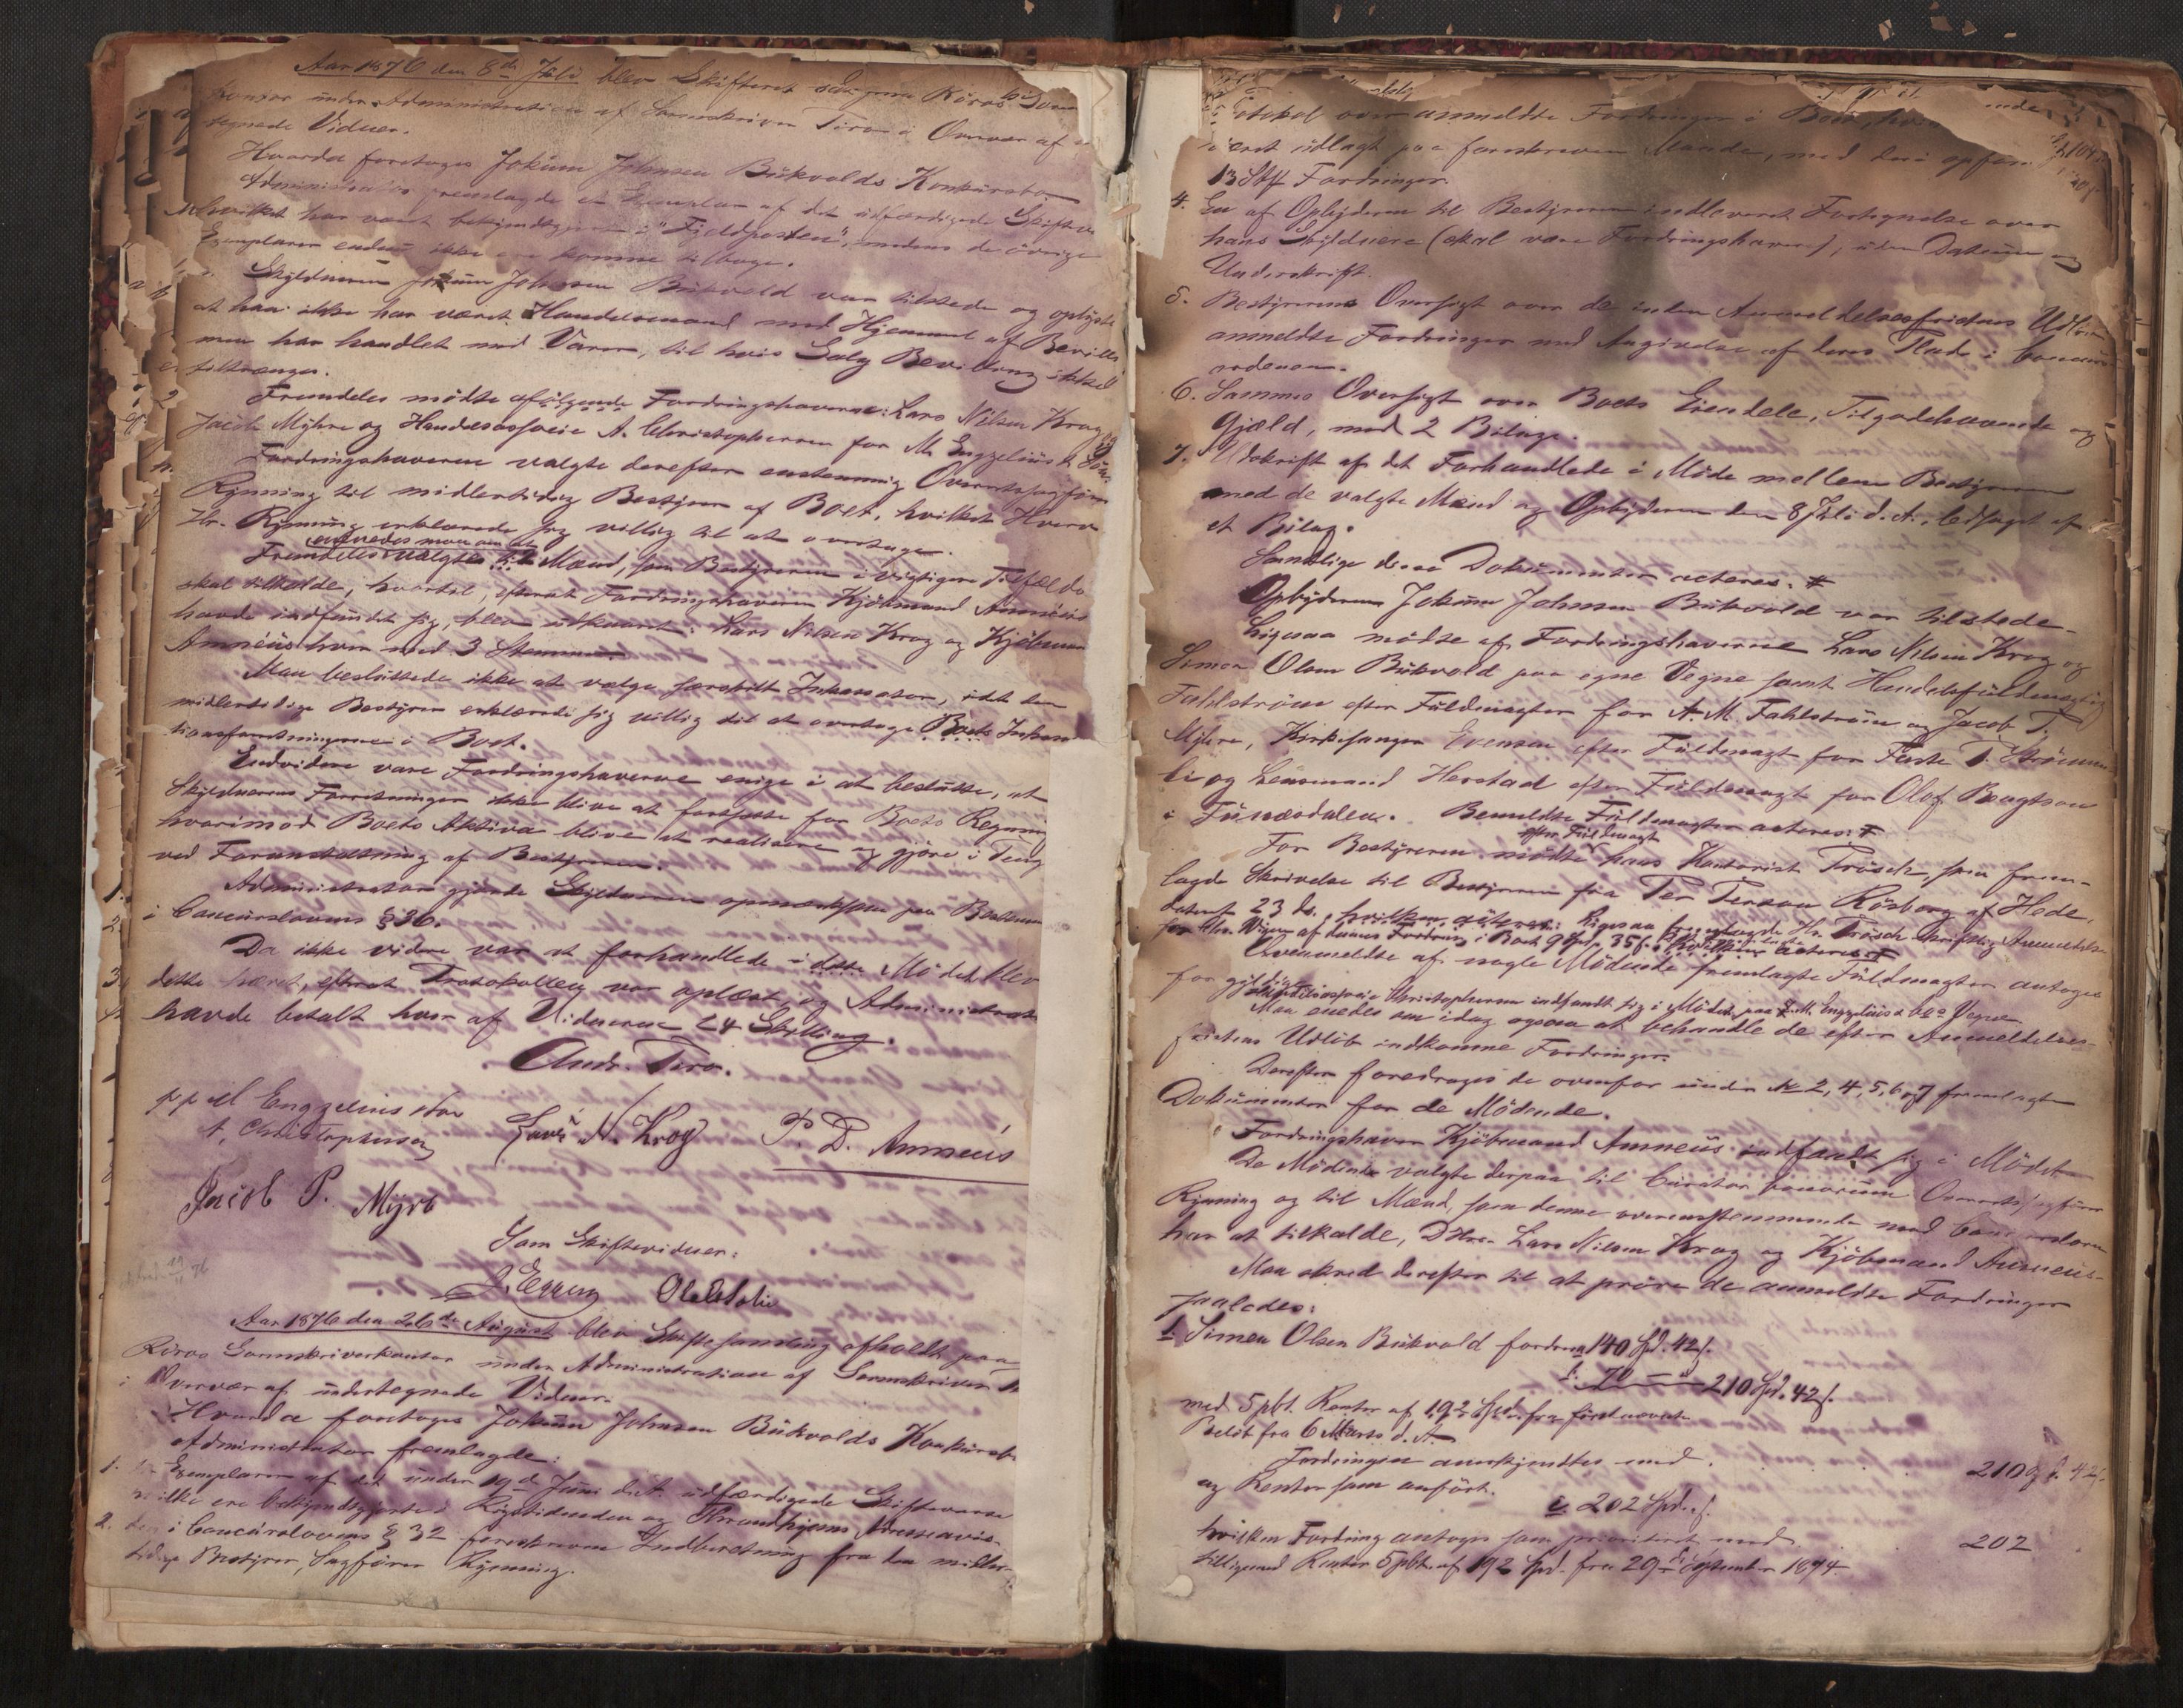 Aar 1876 den 8de Juli blev Skifteret sat paa Röros Soren
kontor under Administration af Sorenskriver Tiro i Overvær af
tegnede Vidner.
Hvorda foretoges Jokum Johnsen Bukvolds Konkursbo
Administrator fremlagde Exemplar af det udfærdigede Skifteva
hvilket har været bekjendtgjort i "Fjeldposten", medens de övrige
Exemplarer endnu ikke ere komne tilbage.
Skyldneren Jokum Johnsen Bukvold var tilstede og oplyste
at han ikke har været Handelsmand med Hjemmel af Bevilli
men har handlet med Varer, til hvis Salg Bevilling ikke
tiltrænges.
Fremdeles mödte afölgende Fordringshaverne: Lars Nilsen Krog
Jacob Myhre og Handelsasfocie A. Christophersen for M. Engzelius & Sön
Fordringshaverne valgte derefter eenstemmig Overretssagförer
Rynning til midlertidig Bestyrer af Boet, hvilket Hverv
Hr. Rynning erklærede sig villig til at overtage.
enedes man om at
Fremdeles valgtes til 2 Mænd, som Bestyreren i vigtigere Tilfælde
skal tilkalde, hvortil, efterat Fordringshaveren Kjöbmand Amnéus
havde indfundet sig, blev udkaaret: Lars Nilsen Krog og Kjöbman
Amnéus hver med 3 Stemmer.
Man besluttede ikke at vælge særskilt Inkassator, idet den
midlertidige Bestyrer erklærede sig villig til at overtage Boets Inkassa
tionsforretningerne i Boet.
Endvidere vare Fordringshaverne enige i at beslutte, at
Skyldnerens Forretninger ikke blive at fortsætte for Boets Regning
hvorimod Boets Aktiva blive at realisere og gjöre i Peng
ved Foranstaltning af Bestyreren.
Administrator gjorde Skyldneren opmærksom paa Bestem
i Concurslovens § 36.
Da ikke videre var at forhandlede i dette Mödet blev
dette hævet, efterat Protokollen var oplæst, og Administrator
havde betalt hver af Vidnerne 24 Skilling.
Andr. Tiro.
pp M Engzelius & Sön
A. Christophersen Lars N. Krog P. D. Amnéus
Jacob P. Myre
Som Skiftevidner:
J. Eggen
Aar 1876 den 26de August blev Skiftesamling afholdt paa
Röros Sorenskriverkontor under Administration af Sorenskriver
i Overvær af undertegnede Vidner.
Hvorda foretoges Jokum Johnsen Bukvolds Konkursbo
Administrator fremlagde:
1. Exemplarer af det under 19de Juni d.A. udfærdigede Skiftevarse
hvilke ere bekjendtgjorte i Rigstidenden og Throndhjems Adresseavis.
2. den i Concurslovens § 32 foreskrevne Indberetning fra den midler-
tidige Bestyrer, Sagförer Rynning.
Protokol over anmeldte Fordringer i Boet, hvi
været udlagt paa foreskreven Maade, med deri opför
13 Stk Fordringer.
4. En af Opbyderen til Bestyreren indleveret Fortegnelse over
hans Skyldnere (skal være Fordringshavere), uden Datum og
Underskrift.
5. Bestyrerens Oversigt over de inden Anmeldelsesfristens Udlöb
anmeldte Fordringer med Angivelse af deres Plads i Concurs
ordenen.
6. Sammes Oversigt over Boets Eiendele, Tilgodehavende og
Gjæld, med 2 Bilage.
7. Udskrift af det Forhandlede i Möde mellem Bestyreren
med de valgte Mænd og Opbyderen den 8 Juli d.A., ledsaget af
et Bilag.
Samtlige disse Dokumenter acteres.
Opbyderen Jokum Johnsen Bukvold var tilstede.
Ligesaa mödte af Fordringshaverne Lars Nilsen Krog og
Simen Olsen Bukvold paa egne Vegne samt Handelsfuldmægtig
Fahlström efter Fuldmagter for A. M. Fahlström og Jacob P.
Myhre, Kirkesanger Evensen efter Fuldmagt for Peder T. Strömm
li og Lensmand Herstad efter Fuldmagt for Olof Bengtson
i Funæsdalen. Bemeldte Fuldmagter acteres.
efter Fuldmagt
For Bestyreren mödte hans Kontorist Trösch som frem-
lagde Skrivelse til Bestyreren fra Per Person Rösborg af Hede,
dateret 23 ds., hvilken acteres. Ligesaa fremlagde Hr. Trösch skriftlig Anmeldelse
Ovenmeldte af nogle Mödende fremlagte Fuldmagter antoges
for gyldige.
Handelsasfocie Christophersen indfandt sig i Mödet paa M. Engzelius & Co Vegne
Man enedes om idag ogsaa at behandle de efter Anmeldelses-
fristens Udlöb indkomne Fordringer.
Derefter foredroges de ovenfor under No 2, 4, 5, 6 og 7 fremlagte
Dokumenter for de Mödende.
Fordringshaver Kjöbmand Amnéus indfandt sig i Mödet.
De Mödende valgte derpaa til Curator bonorum Overretssagförer
Rynning og til Mænd, som denne overensstemmende med Concursloven
har at tilkalde, DHrr. Lars Nilsen Krog og Kjöbmand Amnéus.
Man skred derefter til at pröve de anmeldte Fordringer
saaledes:
1. Simen Olsen Bukvold fordrer 140 Spd. 42 s.
70 210 Spd. 42 s.
med 5 pCt. Renter af 192 Spd. fra förstnævnte
Belöb fra 6 Marts d. A.
Fordringen anerkjendtes med 210 42
og Renter som anfört.
202 Spd.
hvilken Fordring antoges som prioriteret med 202
tilligemed Renter 5 pCt. af 192 Spd. fra 29de September 1874